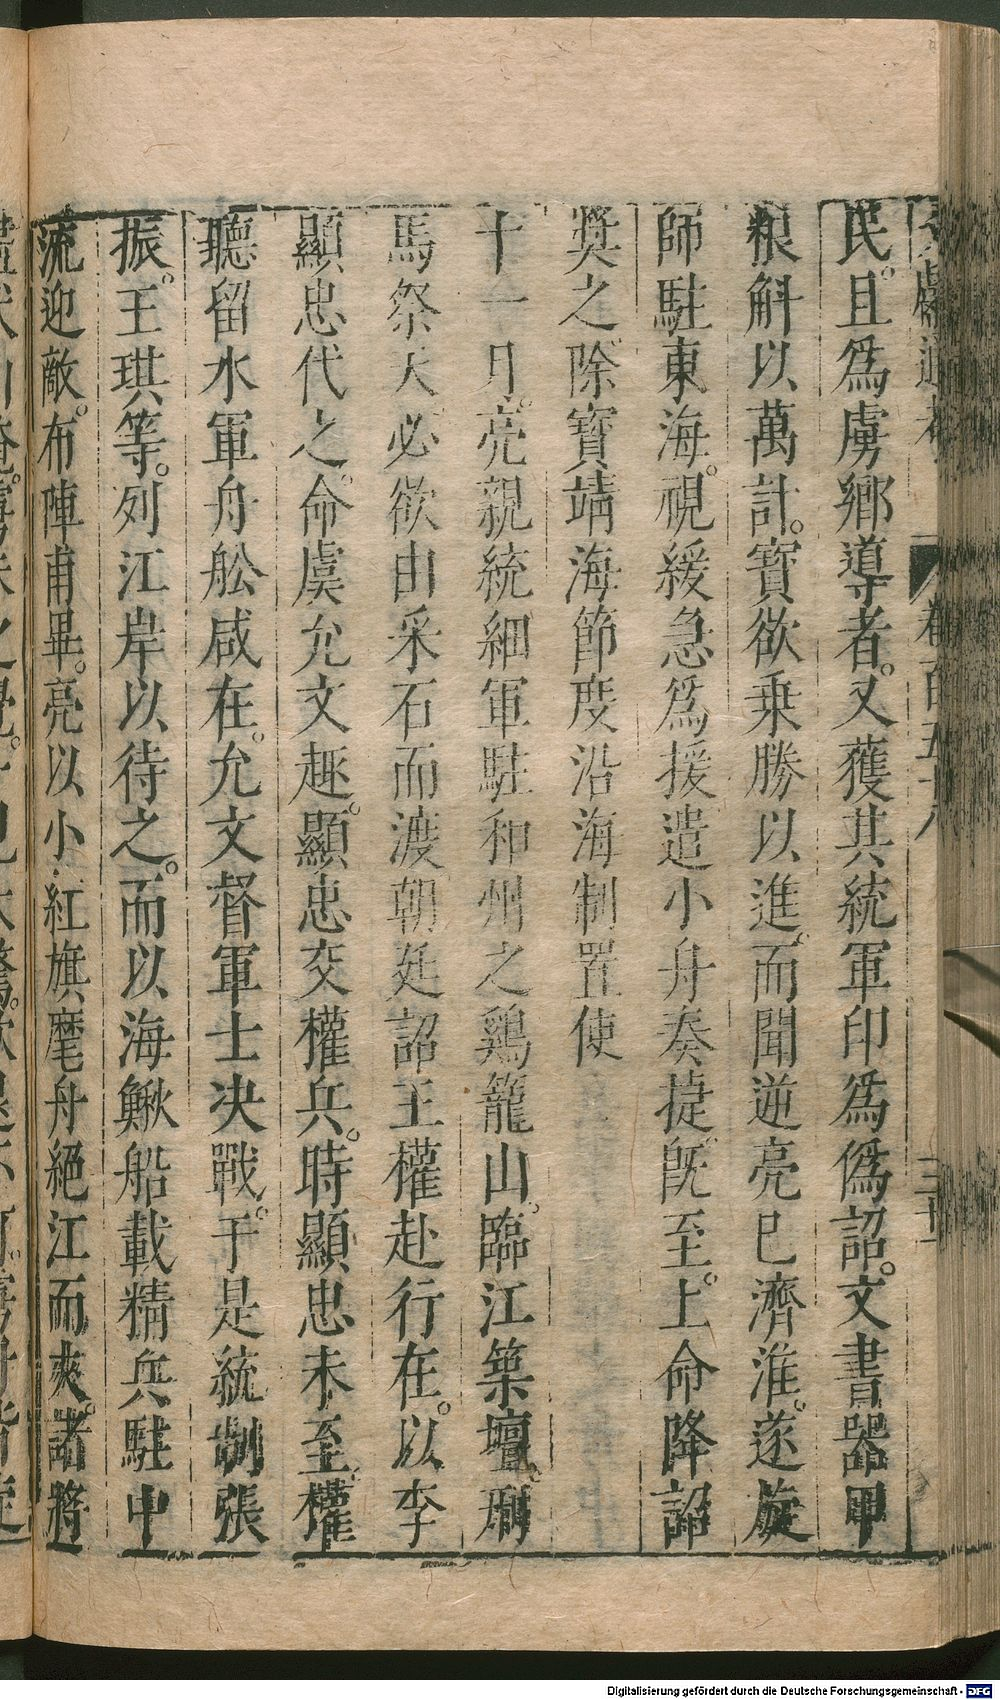 民。且爲虜鄉導者。又獲其統軍印爲僞詔。文書器甲
粮斛以萬計。寳欲乗勝以進。而聞逆亮已濟淮。遂旋
師駐東海。視緩急爲援遣小舟奏捷。旣至。上命降詔
奬之。除寳靖海節度沿海制置使
十一月。亮親統細軍駐和州之鷄籠山。臨江築壇。刑
馬祭天。必欲由采石而渡。朝廷詔王權赴行在。以李
顯忠代之。命虞允文趣。顯忠交權兵。時顯忠未至。權
聽留水軍舟舩咸在。允文督軍士决戰。于是統制張
振。王琪等。列江岸以待之。而以海鰍船載精兵駐中
流迎敵。布陣甫畢。亮以小紅旗麾舟絕江而來。諸將
卷百五十八
Digitalisierung gefördert durch die Deutsche Forschungsgemeinschaft - DFG